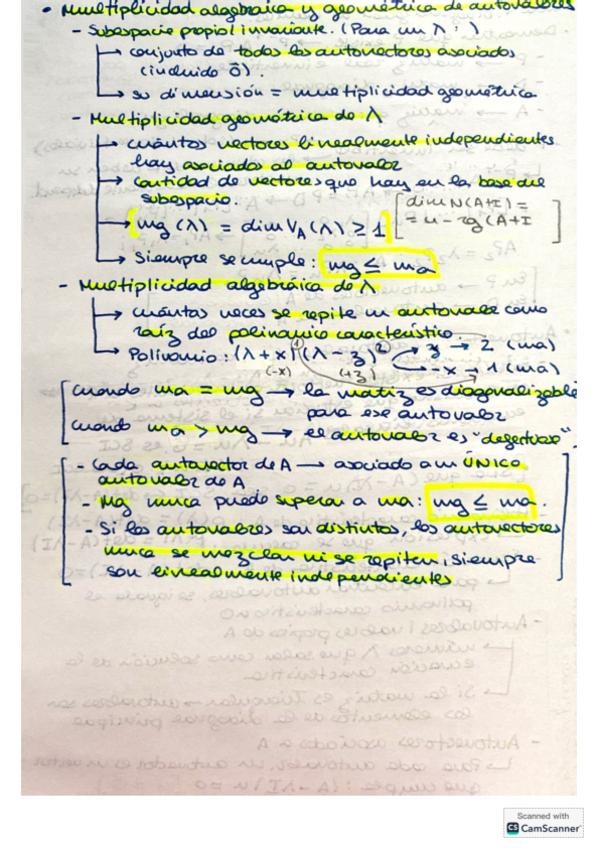 • Multiplicidad algebraica y geométrica de autovalores
- Subespacio propio/invariante. (Para un λ :)
↳ conjunto de todos los autovectores asociados
(incluido 0̄).
↳ su dimensión = multiplicidad geométrica
- Multiplicidad geométrica de λ
↳ cuántos vectores linealmente independientes
hay asociados al autovalor
→ cantidad de vectores que hay en la base del
subespacio.
[dim N(A+I) =
= n - rg (A+I]
→ mg (λ) = dim V_A (λ) ≥ 1
↳ Siempre se cumple: mg ≤ ma
- Multiplicidad algebráica de λ
↳ cuántas veces se repite un autovalor como
raíz del polinomio característico
↳ Polinomio: (λ + x)^① (λ - 3)^② → 3 → 2 (ma)
→ -x → 1 (ma)
(-x) (+3)
[cuando ma = mg → la matriz es diagonalizable
para ese autovalor
cuando ma > mg → el autovalor es "defectuoso".
[- Cada autovector de A → asociado a un ÚNICO
autovalor de A
- Mg nunca puede superar a ma: mg ≤ ma.
- Si los autovalores son distintos, los autovectores
nunca se mezclan ni se repiten, siempre
son linealmente independientes]
Scanned with
CS CamScanner